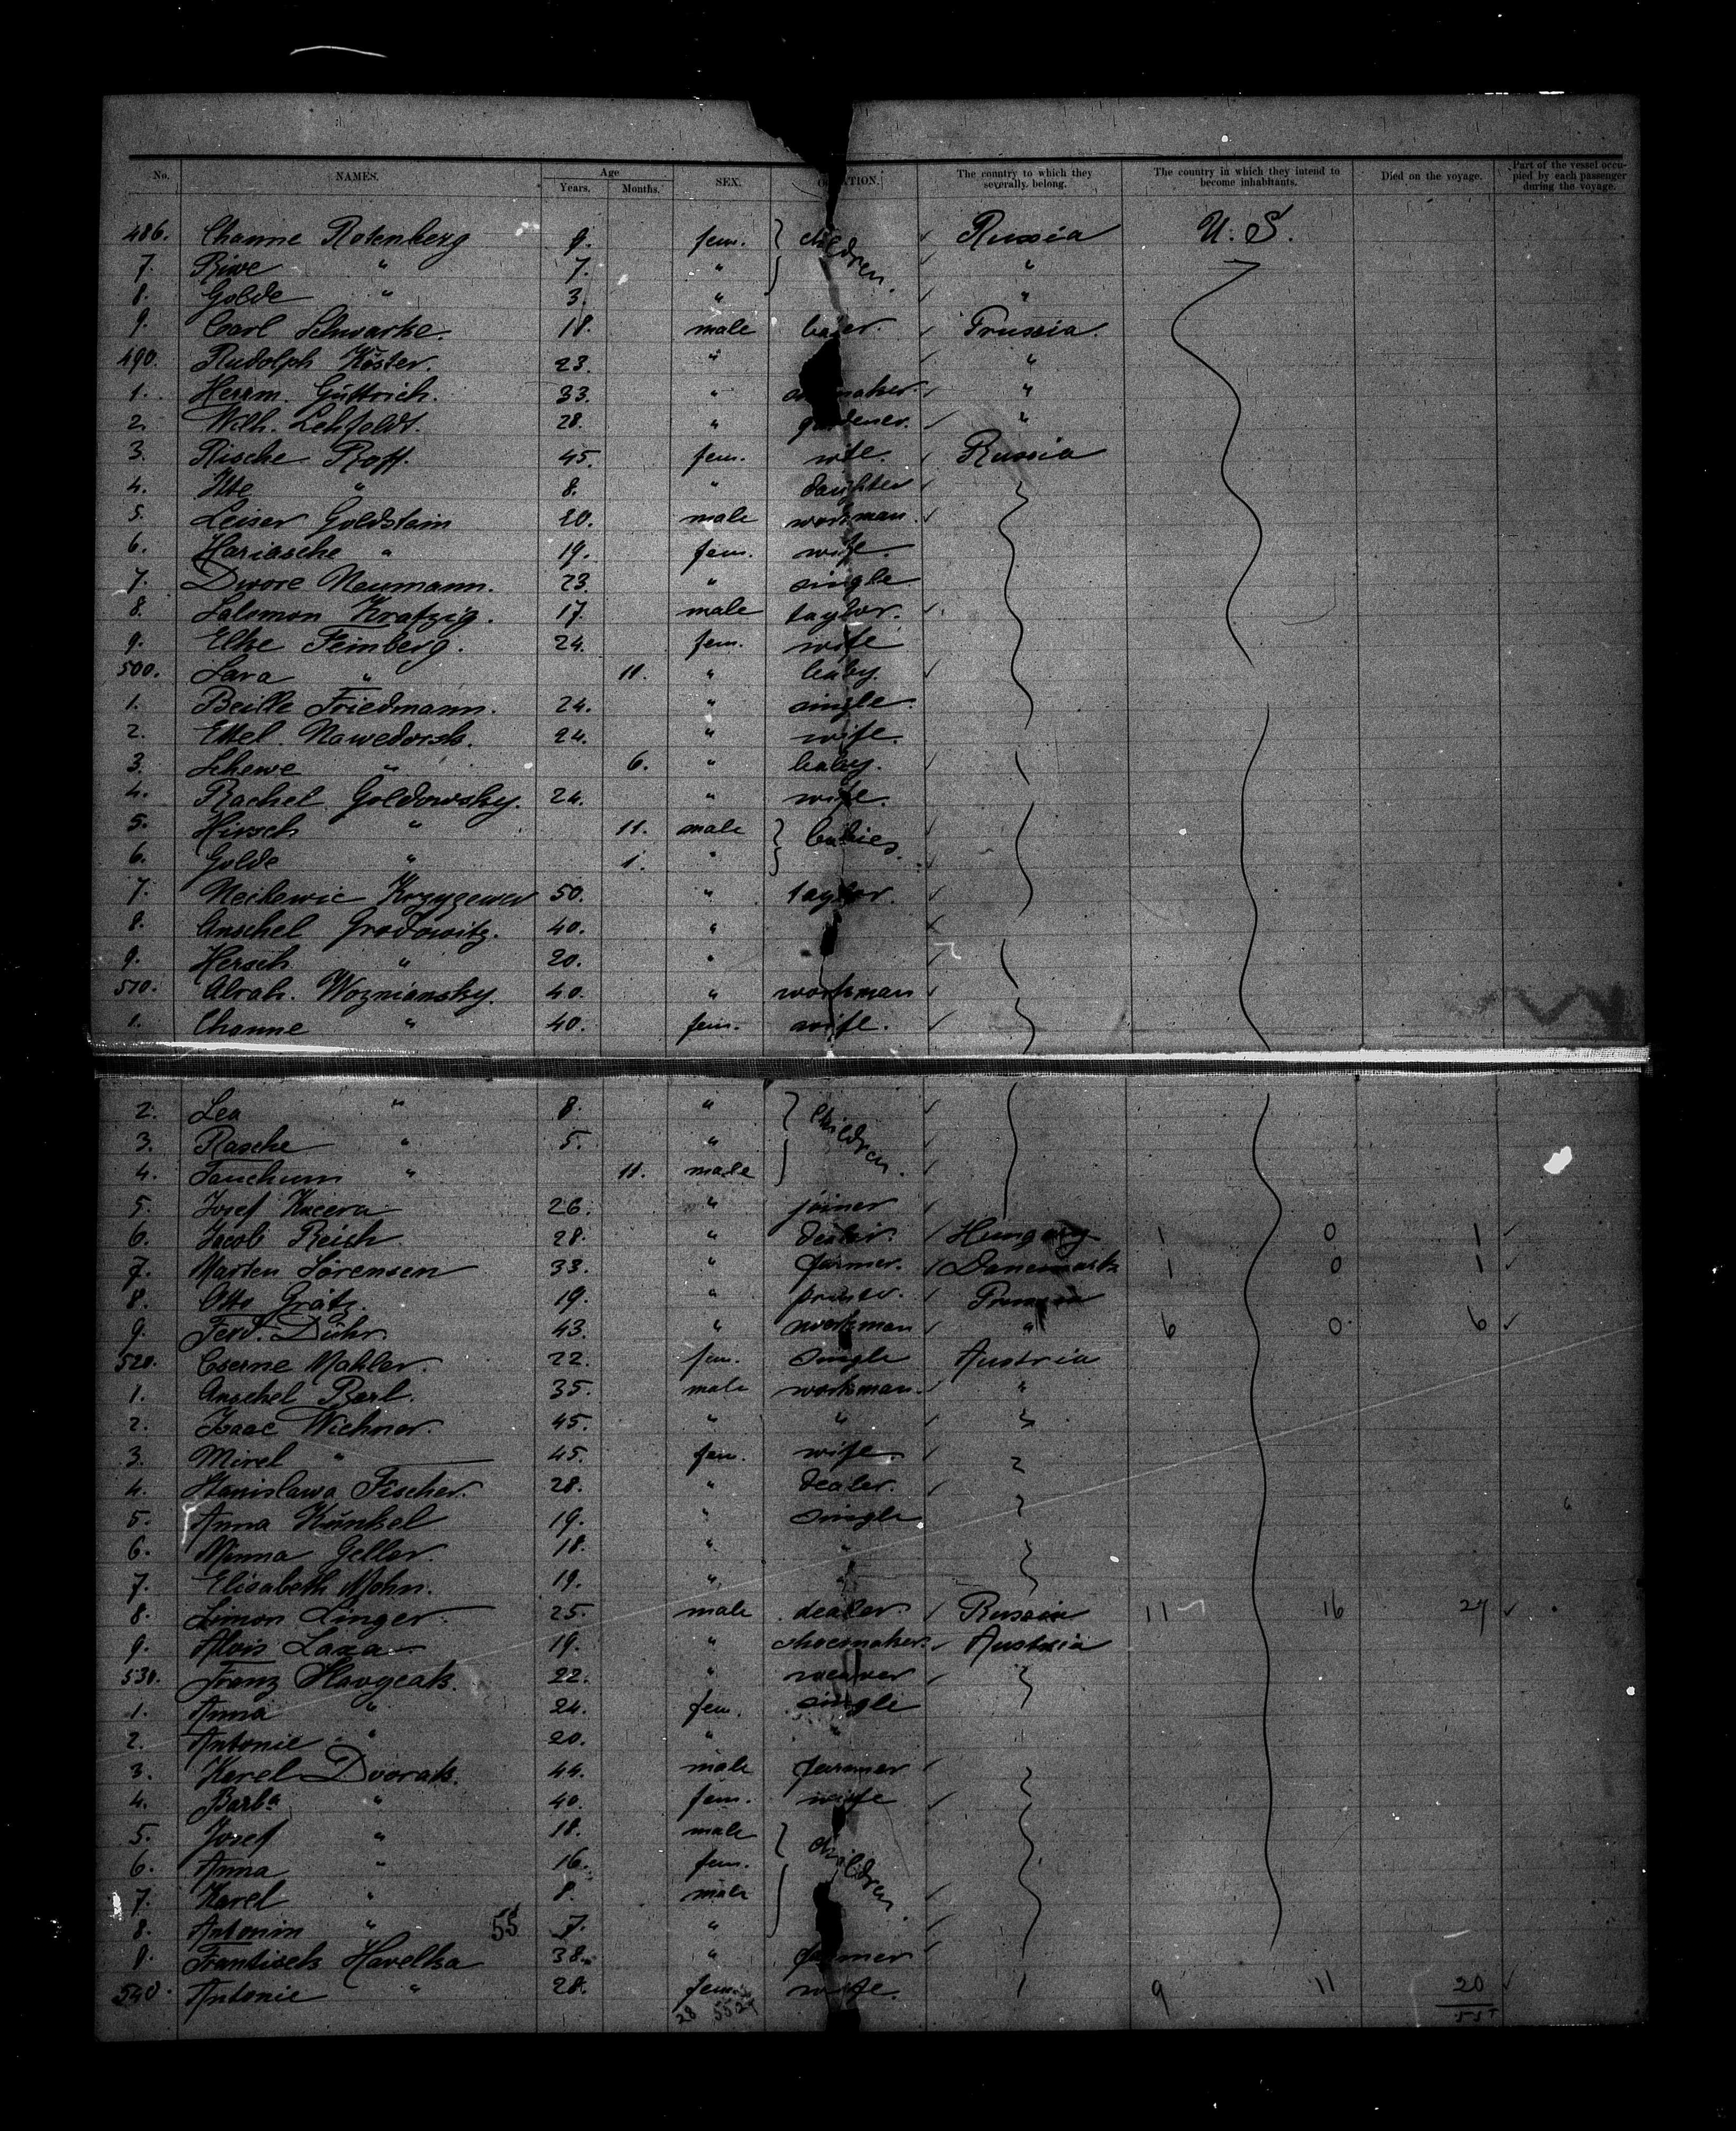 No. NAMES. Age Years. Months. SEX. The country to which they severally belong. The country in which they intend to become inhabitants. Died on the voyage. Part of the vessel occupied by each passenger during the voyage.
486. Channe Rotenberg 9. fem. children. Russia U. S.
7. Riwe " 7. " "
8. Golde " 3. " "
9. Carl Schwarke. 18. male Prussia.
490. Rudolph Köster. 23. " "
1. Herrm. Güttrich. 33. " "
2. Wilh. Lehfoldt. 28. " gardener. "
3. Rische Roff. 45. fem. wife. Russia
4. Itte " 8. " daughter
5. Leiser Goldstain 20. male workman.
6. Hariasche " 19. fem. wife.
7. Dwore Neumann. 23. " single
8. Salomon Kratzig. 17. male taylor.
9. Elke Feinberg. 24. fem. wife
500. Sara " 11. " baby.
1. Beille Friedmann. 24. " single.
2. Ettel. Nawedorsk. 24. " wife.
3. Schewe " 6. " baby.
4. Rachel Goldowsky. 24. " wife.
5. Hirsch " 11. male babies.
6. Golde " 1. "
7. 50. " taylor.
8. Anschel Grodowitz. 40. "
9. Hersch " 20. "
510. Abrah. Wozniansky. 40. " workman
1. Channe " 40. fem. wife.
2. Lea " 8. " children.
3. Rasche " 5. "
4. Tauchum " 11. male
5. Josef Kucera 26. " joiner
6. Jacob Reich 28. " dealer. Hungary 1 0 1
7. Marten Sörensen 33. " farmer. Danemark 1 0 1
8. Otto Grätz. 19. " Prussia
9. Ferd. Dühr. 43. " workman " 6 0 6
520. Mahler. 22. fem. single Austria
1. Anschel Berl. 35. male workman. "
2. Isaac Wichner. 45. " "
3. Mirel " 45. fem. wife
4. Stanislawa Fischer. 28. " dealer.
5. Anna Künkel 19. " single
6. Minna Geller. 18. " "
7. Elisabeth Mohn. 19. " "
8. Simon Linger. 25. male dealer. Russia 11 16 27
9. Alois Laxa 19. " shoemaker. Austria
530. Franz 22. " weaver
1. Anna " 24. fem. single
2. Antonie " 20. " "
3. Karel Dvorak. 44. male farmer
4. Barba " 40. fem. wife
5. Josef " 18. male children
6. Anna " 16. fem.
7. Karel " 8. male
8. Antonin " 55 7. "
9. Frantisek Havelka 38. " farmer
540. Antonie " 28. fem. wife. 9 11 20
28 55